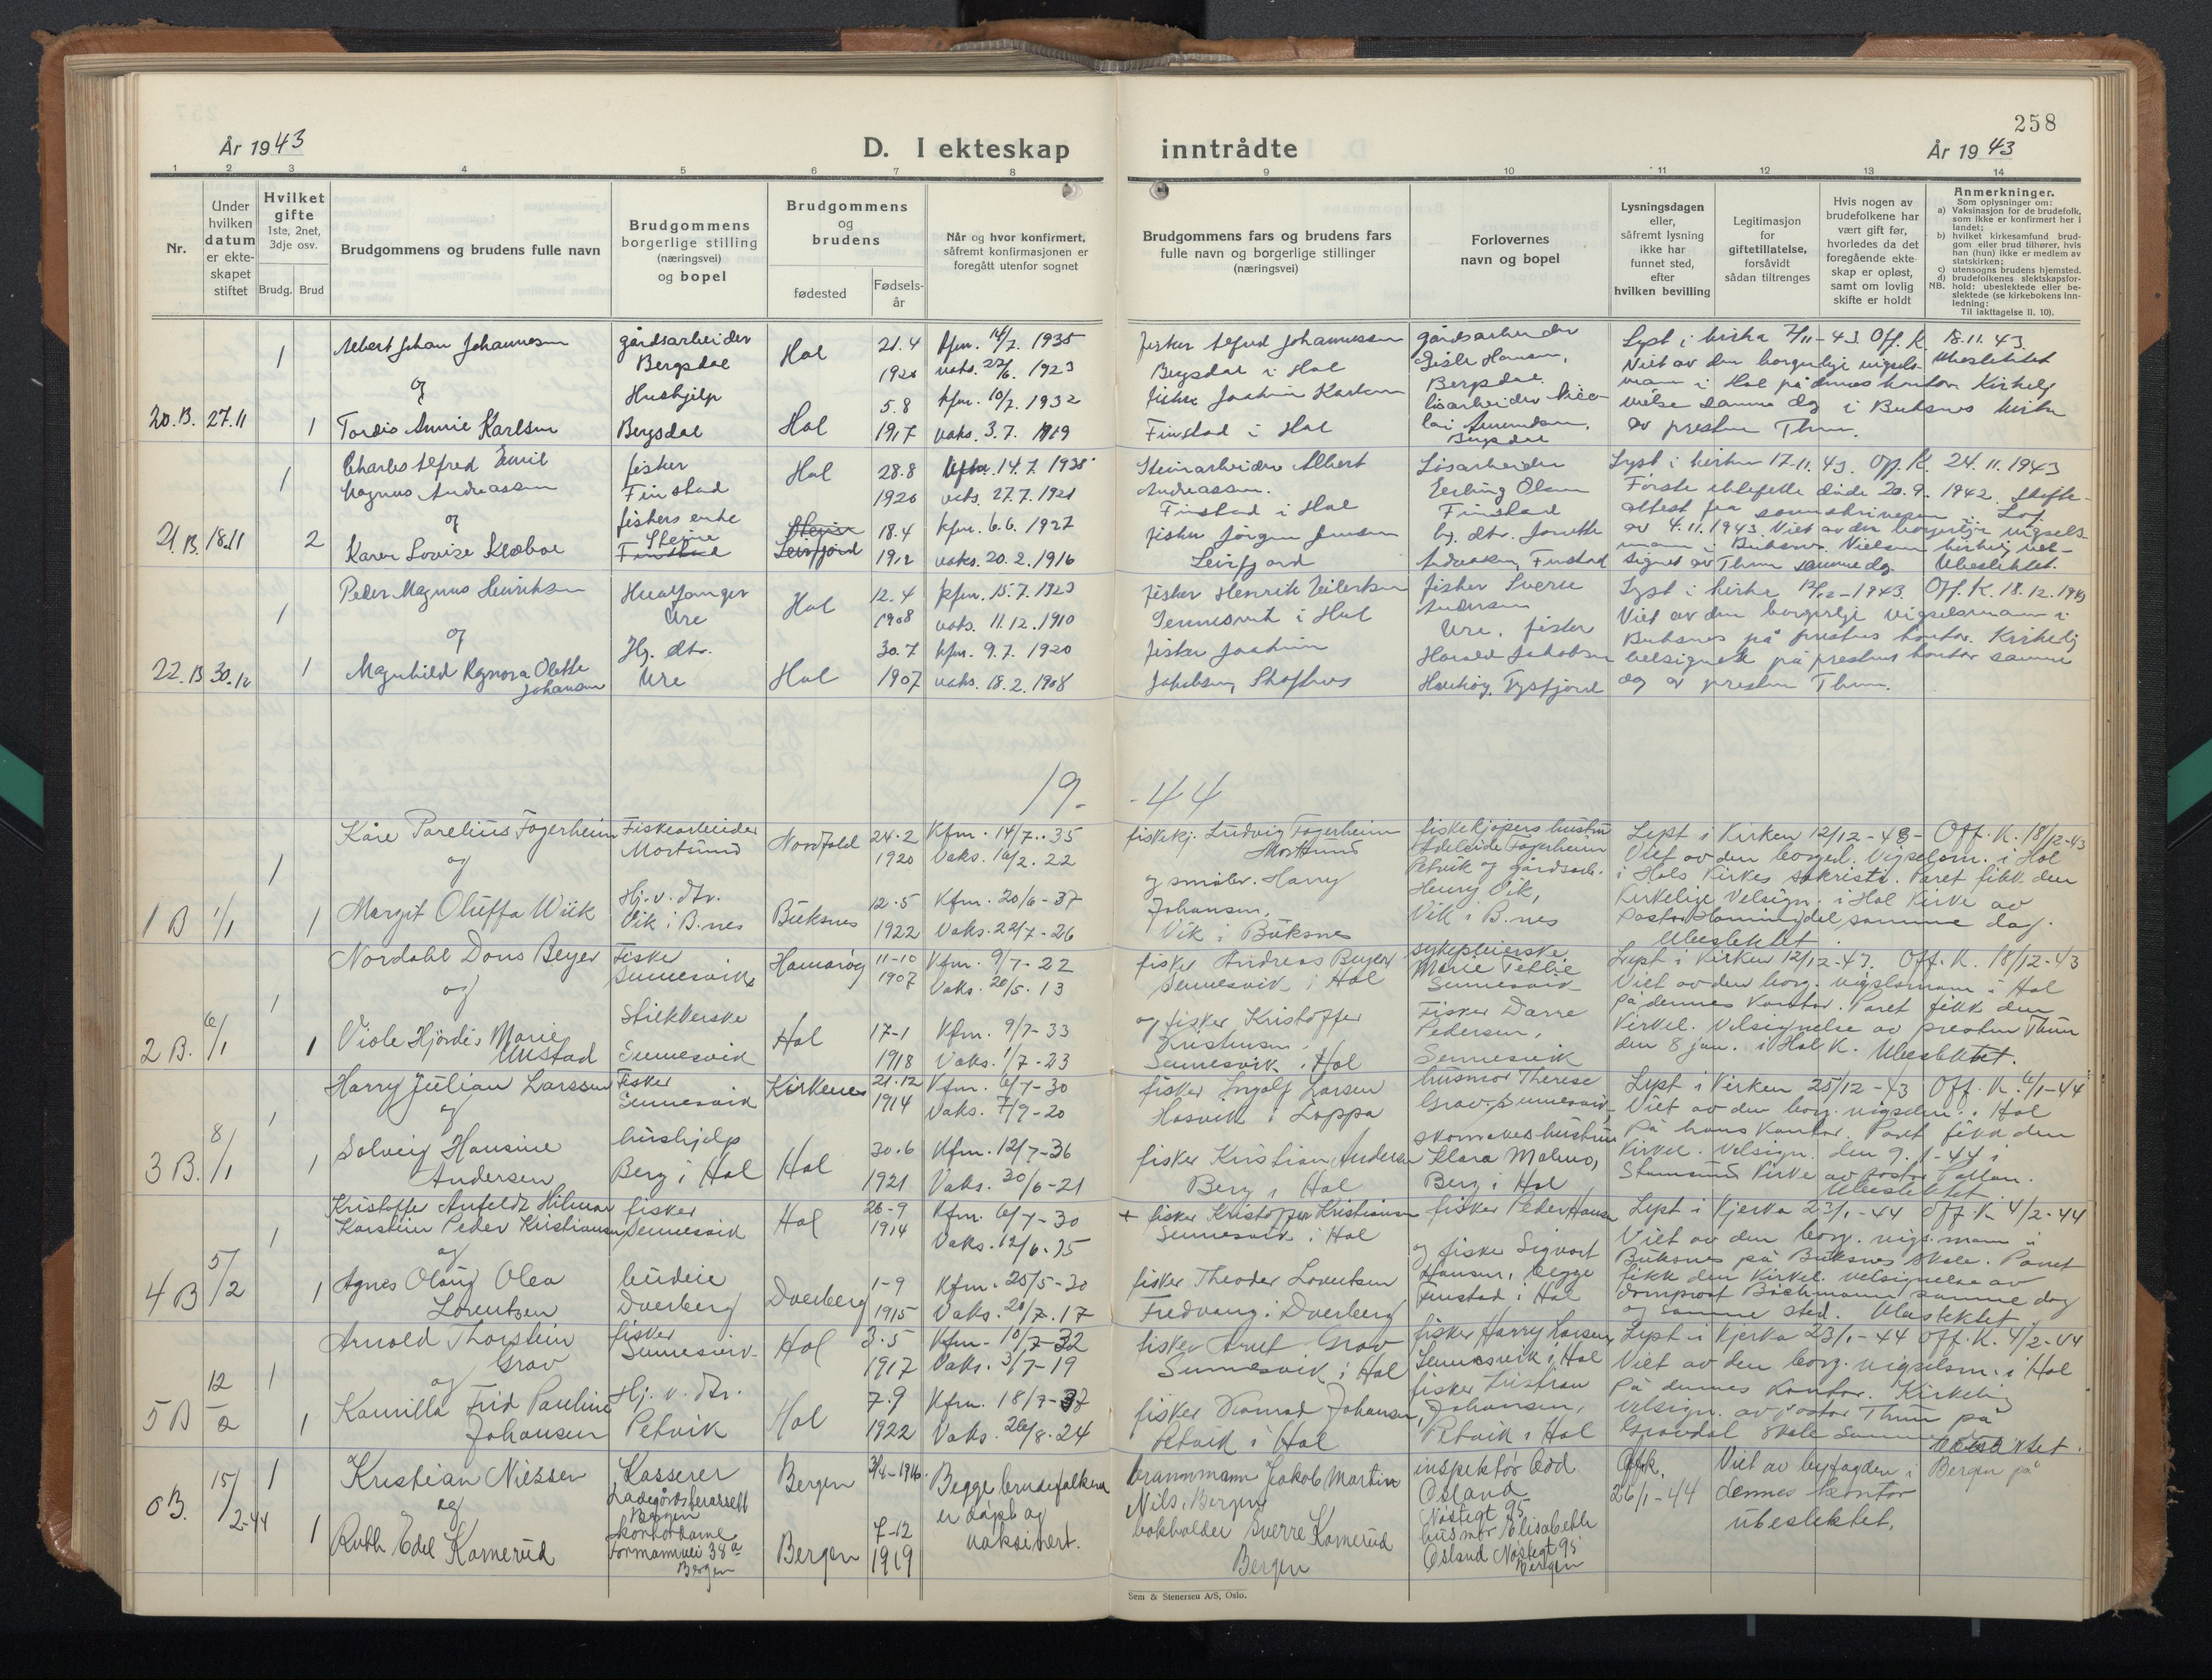 258
År 1943
D. I ekteskap inntrådte
År 1943
1 2 3 4 5 6 7 8 9 10 11 12 13 14
Nr.
Under
hvilken
datum
er ekte-
skapet
stiftet
Hvilket
gifte
1ste, 2net,
3dje osv.
Brudg. Brud
Brudgommens og brudens fulle navn
Brudgommens
borgerlige stilling
(næringsvei)
og bopel
Brudgommens
og
brudens
fødested
Fødsels-
år
Når og hvor konfirmert,
såfremt konfirmasjonen er
foregått utenfor sognet
Brudgommens fars og brudens fars
fulle navn og borgerlige stillinger
(næringsvei)
Forlovernes
navn og bopel
Lysningsdagen
eller,
såfremt lysning
ikke har
funnet sted,
efter
hvilken bevilling
Legitimasjon
for
giftetillatelse,
forsåvidt
sådan tiltrenges
Hvis nogen av
brudefolkene har
vært gift før,
hvorledes da det
foregående ekte-
skap er opløst,
samt om lovlig
skifte er holdt
Anmerkninger.
Som oplysninger om:
a) Vaksinasjon for de brudefolk,
som ikke er konfirmert her i
landet;
b) hvilket kirkesamfund brud-
gom eller brud tilhører, hvis
han (hun) ikke er medlem av
statskirken;
c) utensogns brudens hjemsted.
d) brudefolkenes slektskapsfor-
NB. hold: ubeslektede eller be-
slektede (se kirkebokens inn-
ledning:
Til iakttagelse II, 10).
20.B. 27.11
1
Albert Johan Johannessen
og
1 Tordis Annie Karlsen
gårdsarbeider
Bergsdal
Hushjelp
Bergsdal
Hol
Hol
21.4
1920
5.8
1917
kfm. 14/7. 1935
vaks. 22/6. 1923
kfm. 10/7. 1932
vaks. 3.7. 1919
fisker Alfred Johannessen
Bergsdal i Hol
fisker Joakim Karlsen
Finstad i Hol
gårdsarbeider
Gisle Hansen,
Bergsdal.
løsarbeider Nico-
lai Amundsen,
Bergsdal
Lyst i kirka 7/11-43. Off. K. 18.11.43
Viet av den borgerlige vigsels- Ubeslektet
mann i Hol på dennes kontor. Kirkelig
vielse samme dag i Buksnes kirke
av presten Thun.
21.B. 18.11
1
Charles Alfred Emil
Magnus Andreassen
og
2 Karen Lovise Klæboe
fisker
Finstad
fiskers enke
Steine
Finstad
Hol
Steine
Leirfjord
28.8
1920
18.4
1912
14.7.1935
vaks. 27.7.1921
kfm. 6.6. 1927
vaks. 20.2.1916
Steinarbeider Albert
Andreassen.
Finstad i Hol
fisker Jørgen Jensen
Leirfjord
Løsarbeider
Erling Olsen
Finstad
hj. dtr. Jorette
Andreassen, Finstad
Lyst i kirken 17.11.43. Off. K. 24.11.1943
Første ektefelle døde 20.9.1942. Skifte-
attest fra sorenskriveren i Lof.
av 4.11.1943. Viet av den borgerlige vigsels-
mann i Buksnes. Nielsen kirkelig vel-
signet av Thun samme dag. Ubeslektet.
22.B 30.12
1
Peder Magnus Henriksen
og
1 Magnhild Ragnora Olette
Johansen
Hvalfanger
Ure
Hj. dtr.
Ure
Hol
Hol
12.4
1908
30.7
1907
kfm. 15.7.1923
vaks. 11.12.1910
kfm. 9.7. 1920
vaks. 18.2.1908
fisker Henrik Eilertsen
Sennesvik i Hol
fisker Joakim
Jakobsen, Skafhus
fisker Sverre
Andersen
Ure. fisker
Harald Jakobsen
Haukøy, Tysfjord
Lyst i kirka 12/12-1943. Off. K. 18.12.1943
Viet av den borgerlige vigselsmann i
Buksnes på prestens kontor. Kirkelig
velsignet på prestens kontor samme
dag av presten Thun.
19.-44
1 B 1/1
1
Kåre Parelius Fagerheim
og
1 Margit Oluffa Wiik
Fiskearbeider
Mortsund
Hj.v. dtr.
Vik i B.nes
Nordfold
Buksnes
24.2
1920
12.5
1922
Kfm. 14/7.-35
Vaks. 16/2. 22
Kfm. 20/6-37
Vaks. 22/7-26
fiskekj. Ludvig Fagerheim
Mortsund
og småbr. Harry
Johansen,
Vik i Buksnes
fiskekjøpers hustru
Adeleide Fagerheim
Petvik og gårdsarb.
Henry Vik,
Vik i B.nes
Lyst i Kirken 12/12-43- Off. K. 18/12-43
Viet av den borgerl. Vigselsm. i Hol
i Hols Kirkes sakristi. Paret fikk den
Kirkelige Velsign. i Hol Kirke av
samme dag.
Ubeslektet.
2 B. 6/1
1
Nordahl Dons Beyer
og
1 Viole Hjørdis Marie
Unstad
Fisker
Sennesvik
Strikkerske
Sennesvik
Hamarøy
Hol
11-10
1907
17-1
1918
Kfm. 9/7-22
Vaks. 20/5.13
Kfm. 9/7-33
Vaks. 1/7-23
fisker Andreas Beyer
Sennesvik i Hol
og fisker Kristoffer
Kristensen,
Sennesvik i Hol
sykepleierske
Marie Teblie
Sennesvik
Fisker Darre
Pedersen,
Sennesvik
Lyst i Kirken 12/12-43. Off. K. 18/12-43
Viet av den borg. vigslsmann i Hol
på dennes Kontor. Paret fikk den
Kirkel. Velsignelse av presten Thun
den 8 jan. i Hol K. Ubeslektet.
3 B. 8/1
1
Harry Julian Larssen
og
1 Solveig Hansine
Andersen
Fisker
Sennesvik
hushjelp
Berg i Hol
Kirkenes
Hol
21.12
1914
30.6
1921
Kfm. 6/7-30
Vaks. 7/9-20
Kfm. 12/7-36
Vaks. 30/6-21
fisker Ingolf Larsen
Hasvik i Loppa
fisker Kristian Andersen
Berg i Hol
husmor Therese
Grav, Sennesvik
skomakeshustru
Klara Malmo,
Berg i Hol
Lyst i Kirken 25/12-43 Off. K. 6/1-44
Viet av den borg. vigselsm. i Hol
På hans Kontor. Paret fikk den
Kirkel. Velsign. den 9.1-44 i
Stamsund Kirke av pastor
Ubeslektet
4 B 5/2
1
Kristoffer Anfeldt Hilmar
Karstein Peder Kristiansen
og
1 Agnes Olaug Olea
Lorentzen
fisker
Sennesvik
budeie
Dverberg
Hol
Dverberg
26-9
1914
1-9
1915
Kfm. 6/7-30
Vaks. 12/6.15
Kfm. 25/5-30
Vaks. 20/7.17
+ fisker Kristoffer Kristiansen
Sennesvik i Hol
fisker Theodor Lorentsen
Fredvang i Dverberg
fisker Peder Hansen
og fisker Sigvart
Hansen, begge
Finstad i Hol
Lyst i Kjerka 23/1-44 Off. K. 4/2-44
Viet av den borg. vigs.mann i
Buksnes på Buksnes skole. Paret
fikk den Kirkel. velsignelse av
domprost Bachmann samme dag
og samme sted. Ubeslektet.
5 B 12/2
1
Arnold Thorstein
Grav
og
1 Kamilla Frid Pauline
Johansen
fisker
Sennesvik
Hj. v. dtr.
Petvik
Hol
Hol
3.5
1917
7.9
1922
Kfm. 10/7-32
Vaks. 3/7-19
Kfm. 18/7-37
Vaks. 26/8.24
fisker Arnt Grav
Sennesvik i Hol
fisker Konrad Johansen,
Petvik i Hol
fisker Harry Larsen
Sennesvik i Hol
fisker Tristran
Johansen,
Petvik i Hol
Lyst i Kjerka 23/1-44 Off. K. 4/2-44
Viet av den borg. vigselsm. i Hol
På dennes Kontor. Kirkelig
velsign. av pastor Thun på
Gravdal skole samme
Ubeslektet.
6B. 15/2-44
1
Kristian Nilssen
og
1 Ruth Edel Kamerud
Kasserer
Bergen
kontordame
Formannvei 38a
Bergen
Bergen
Bergen
3/4-1916.
7-12
1919
Begge brudefolkene
er døpt og
vaksinert.
brannmann Jakob Martin
Nils. Bergen
bokholder Sverre Kamerud
Bergen
inspektør Odd
Osland
Nøstegt 95
husmor Elisabeth
Osland Nøstegt 95
Bergen
Offk.
26/1-44
Viet av byfogden i Bergen på
dennes kontor
ubeslektet.
Sem & Stenersen A/S, Oslo.